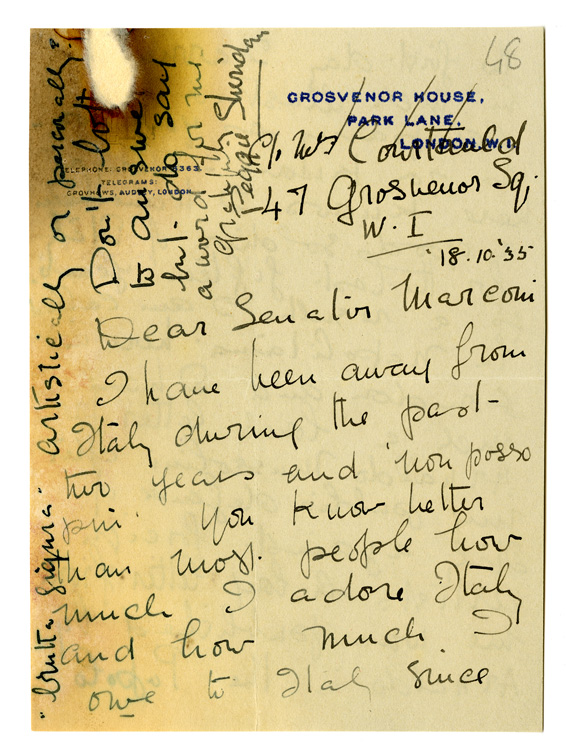 48
GROSVENOR HOUSE,
PARK LANE,
LONDON. W.1.
TELEPHONE: GROSVENOR 6363
TELEGRAMS:
GROVHOWS, AUDLEY, LONDON.
c/o Mrs Courtauld
47 Grosvenor Sq.
W. I
18.10.'35
Dear Senator Marconi
I have been away from
Italy during the past
two years and 'non posso
piu'. You know better
than most people how
much I adore Italy
and how much I
owe to Italy since
"brutta figura" artistically or personally.
Don't bother
to answer
but say
a word for me.
Gratefully
Sheridan